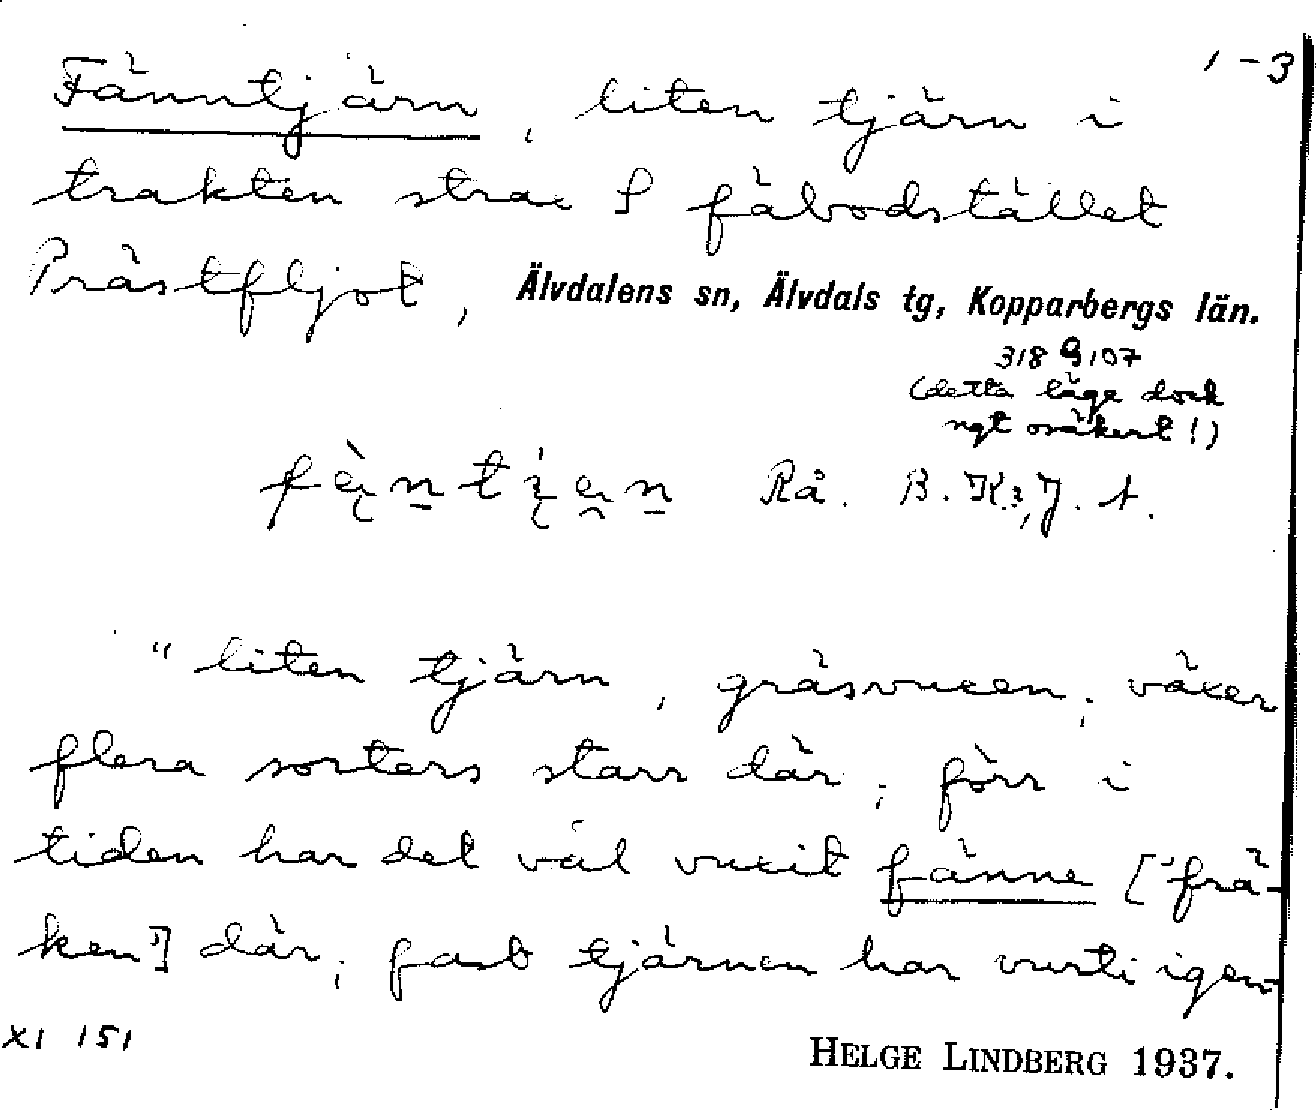 1-3
Fänntjärn, liten tjärn i
trakten strax S fäbodstället
Prästfljot, Älvdalens sn, Älvdals tg, Kopparbergs län.
318 G 107
(detta läge dock
ngt osäkert!)
Rå. B. K:r, J. A.
"liten tjärn, gräsvuxen; växer
flera sorters starr där; förr i
tiden har det väl vuxit fänne ['frä-
ken'] där; fast tjärnen har vurti igen-
XI 151
HELGE LINDBERG 1937.